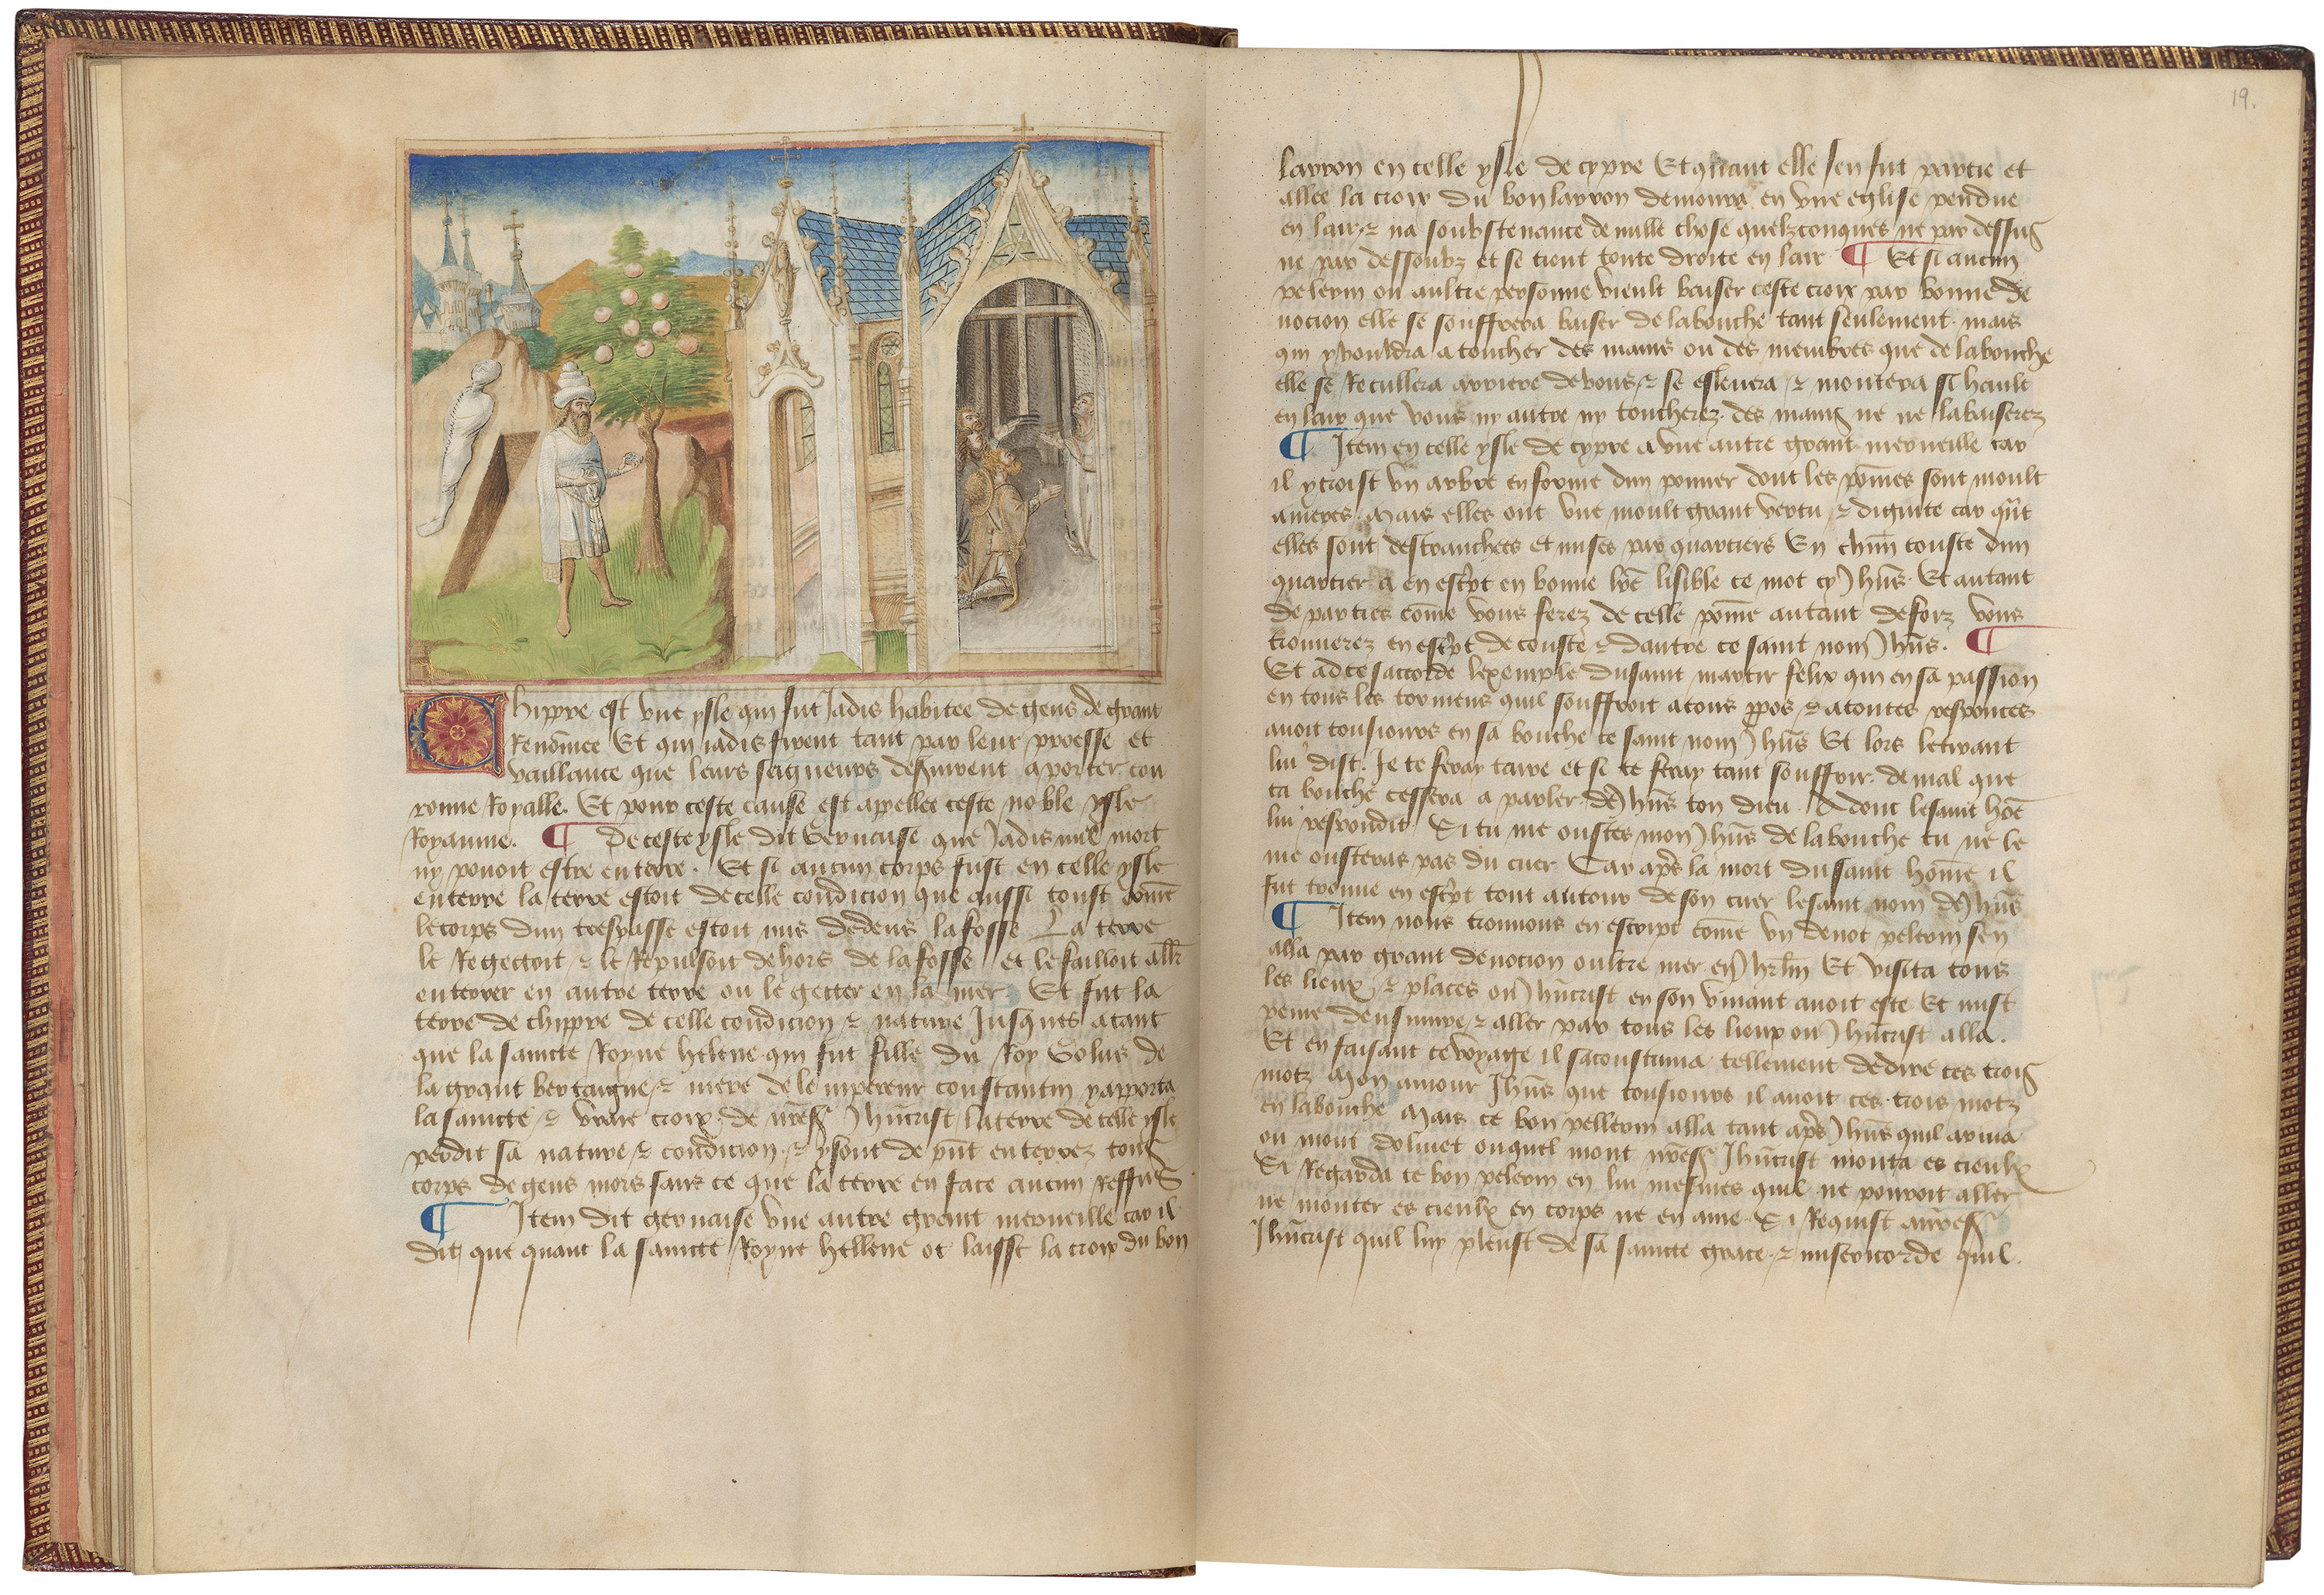 Chippre est vne ysle qui fut Jadis habitee de gens de grant
Renom̄ee Et qui iadis firent tant par leur proesse et
vaillance que leurs seigneurs desseruirent a porter cou
ronne Royalle. Et pour ceste cause est appellee ceste noble ysle
Royaume. ¶ De ceste ysle dit Geruaise que Jadis nul mort
ny pouoit estre enterre. Et si aucun corps fust en celle ysle
enterre la terre estoit de celle condicion que aussi toust com̄e
le corps dun trespasse estoit mis dedens la fosse La terre
le Regectoit & le Repulsoit dehors de la fosse et le failloit all̄r
enterrer en autre terre ou le gecter en la mer. Et fut la
terre de chippre de celle condicion & nature Jusques atant
que la saincte Royne helene qui fut fille du Roy Colus de
la grant bertaigne & mere de lempereur constantin y apporta
la saincte & vraye croix de nr̄e sr̄ Jhūcrist la terre de celle ysle
perdit sa nature & condicion & y sont de pn̄t enterrez tous
corps de gens mors sans ce que la terre en face aucun Reffus
¶ Item dit geruaise vne autre grant merueille car il
dit que quant la saincte Royne hellene ot laisse la croix du bon
19.
larron en celle ysle de cypre Et quant elle sen fut partie et
allee la croix du bon larron demoura en vne eglise pendue
en lair & na soubstenance de nulle chose quelzconques ne par dessus
ne par dessoubz et se tient toute droite en lair ¶ Et si aucun
pelerin ou aultre personne vieult baiser ceste croix par bonne de
uocion elle se souffrera baiser de labouche tant seulement. mais
qui y vouldra atoucher des mains ou des membres que de labouche
elle se Recullera arriere de vous & se esleuera & montera si hault
en lair que vous ny autre ny toucherez des mains ne ne labaiserez
¶ Item en celle ysle de cypre a vne autre grant merueille car
il y croist vn arbre en forme dun pomier dont les pom̄es sont moult
ameres. Mais elles ont vne moult grant vertu & dignite car qn̄t
elles sont destranchees et mises par quartiers En chūn couste dun
quartier a en esc̄pt en bonne lr̄e lisible ce mot cy Jhūs. Et autant
de parties com̄e vous ferez de celle pom̄e autant de foiz vous
trouuerez en esc̄pt de couste & dautre ce saint nom Jhūs. ¶
Et ad ce saccorde lexemple du saint martir felix qui en sa passion
en tous les tormens quil souffroit a tous p̄pos & a toutes responces
auoit tousiours en sa bouche ce saint nom Jhūs Et lors le tirant
lui dist. Je te feray taire et si te feray tant souffrir de mal que
ta bouche cessera a parler de Jhūs ton dieu. Adont le saint hōe
lui respondit Si tu me oustes mon Jhūs de labouche tu ne le
me ousteras pas du cuer Car apr̄s la mort du saint hom̄e il
fut trouue en esc̄pt tout autour de son cuer le saint nom de Jhūs
¶ Item nous trouuons en escript com̄e vn deuot pelerin sen
alla par grant deuocion oultre mer en Jhrl̄m Et visita tous
les lieux & places ou Jhūcrist en son viuant auoit este Et mist
peine densuiure & aller par tous les lieux ou Jhūcrist alla.
Et en faisant ce voyage il sacoustuma tellement de dire ces trois
motz Mon amour Jhūs que tousiours il auoit ces trois motz
en labouche Mais ce bon pellerin alla tant apr̄s Jhūs quil ariua
ou mont doliuet ouquel mont nr̄e sr̄ Jhūcrist monta es cieulx
Si Regarda ce bon pelerin en lui mesmes quil ne pouroit aller
ne monter es cieulx en corps ne en ame. Si Requist a nr̄e sr̄
Jhūcrist quil luy pleust de sa saincte grace & misericorde quil